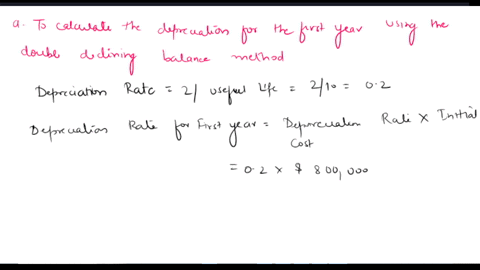 a. To calculate the depreciation for the first year using the
double declining balance method
Depreciation Rate = 2/ useful life = 2/10 = 0.2
Depreciation Rate for First year = Depreciation Rate × Initial
Cost
= 0.2 × $ 800,000